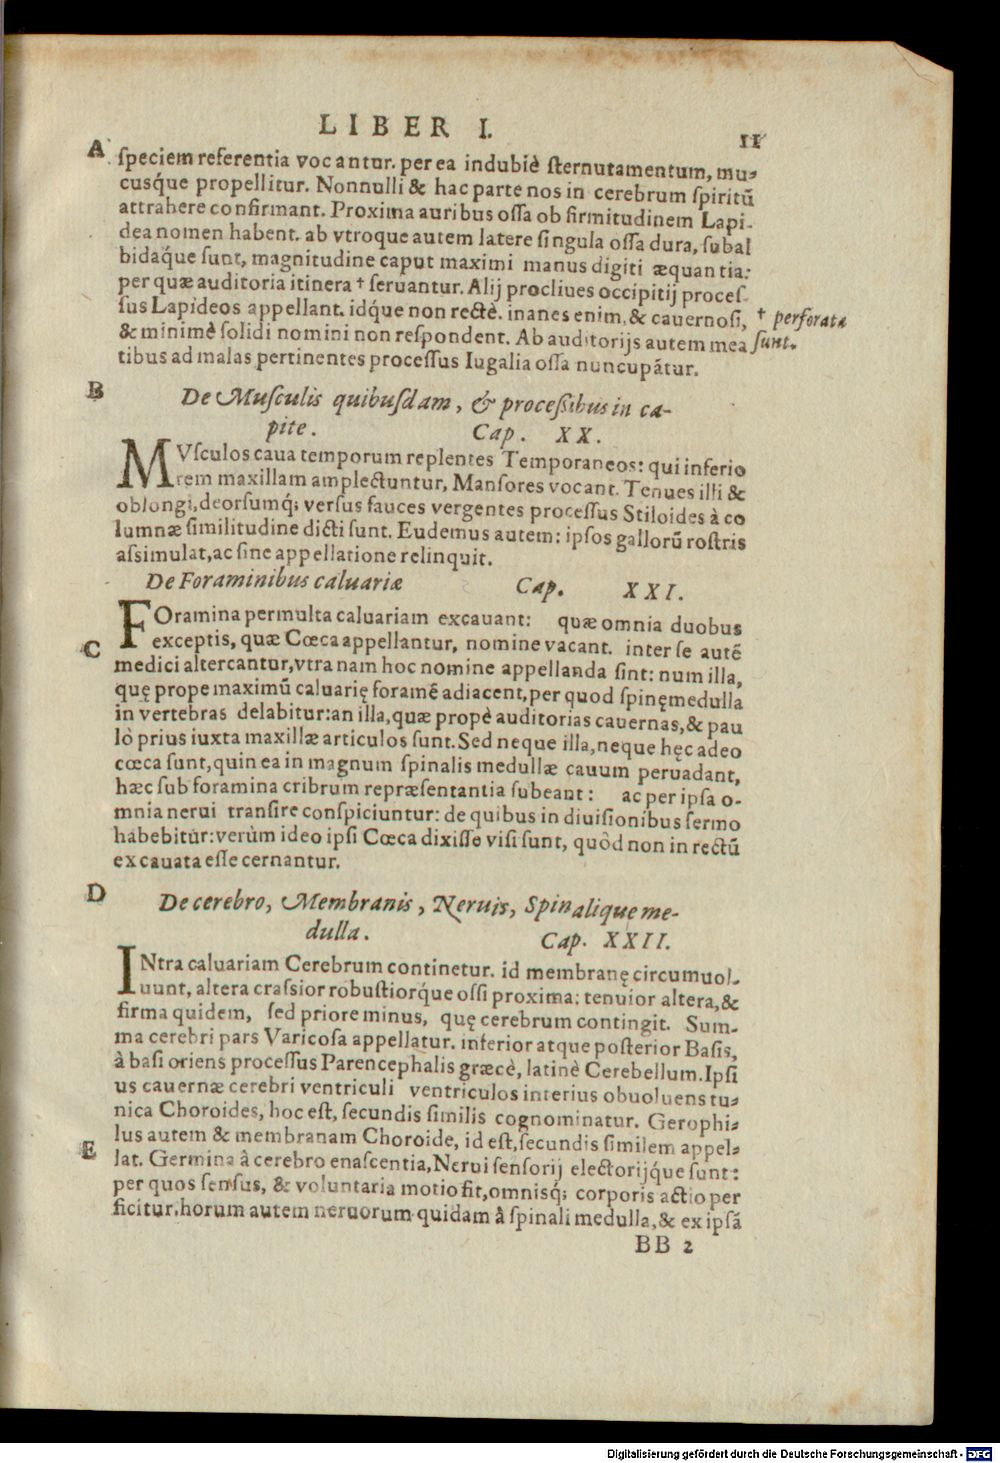 LIBER I. 11
A ſpeciem referentia vocantur. per ea indubiè ſternutamentum, mu-
cuſq́ue propellitur. Nonnulli & hac parte nos in cerebrum ſpiritũ
attrahere confirmant. Proxima auribus oſſa ob firmitudinem Lapi-
dea nomen habent. ab vtroque autem latere ſingula oſſa dura, ſubal
bidaq́ue ſunt, magnitudine caput maximi manus digiti æquantia:
per quæ auditoria itinera † ſeruantur. Alij procliues occipitij proceſ-
ſus Lapideos appellant. idq́ue non rectè. inanes enim, & cauernoſi,
† perforata
& minimè ſolidi nomini non reſpondent. Ab auditorijs autem mea
ſunt.
tibus ad malas pertinentes proceſſus Iugalia oſſa nuncupātur.
B De Muſculis quibuſdam, & proceſſibus in ca-
pite. Cap. XX.
MVſculos caua temporum replentes Temporaneos: qui inferio
rem maxillam amplectuntur, Manſores vocant. Tenues illi &
oblongi, deorſumq́; verſus fauces vergentes proceſſus Stiloides à co
lumnæ ſimilitudine dicti ſunt. Eudemus autem: ipſos gallorũ roſtris
aſsimulat, ac ſine appellatione relinquit.
De Foraminibus caluariæ Cap. XXI.
FOramina permulta caluariam excauant: quæ omnia duobus
exceptis, quæ Cœca appellantur, nomine vacant. inter ſe autẽ
C
medici altercantur, vtra nam hoc nomine appellanda ſint: num illa,
quę prope maximũ caluarię foramẽ adiacent, per quod ſpinę medulla
in vertebras delabitur: an illa, quæ propè auditorias cauernas, & pau
lò prius iuxta maxillæ articulos ſunt. Sed neque illa, neque hęc adeo
cœca ſunt, quin ea in magnum ſpinalis medullæ cauum peruadant,
hæc ſub foramina cribrum repræſentantia ſubeant: ac per ipſa o-
mnia nerui tranſire conſpiciuntur: de quibus in diuiſionibus ſermo
habebitur: verùm ideo ipſi Cœca dixiſſe viſi ſunt, quòd non in rectũ
excauata eſſe cernantur.
D De cerebro, Membranis, Neruis, Spinalique me-
dulla. Cap. XXII.
INtra caluariam Cerebrum continetur. id membranę circumuol-
uunt, altera craſsior robuſtiorq́ue oſſi proxima: tenuior altera, &
firma quidem, ſed priore minus, quę cerebrum contingit. Sum-
ma cerebri pars Varicoſa appellatur. inferior atque poſterior Baſis,
à baſi oriens proceſſus Parencephalis græcè, latinè Cerebellum. Ipſi
us cauernæ cerebri ventriculi ventriculos interius obuoluens tu-
nica Choroides, hoc eſt, ſecundis ſimilis cognominatur. Gerophi-
lus autem & membranam Choroide, id eſt, ſecundis ſimilem appel-
E lat. Germina à cerebro enaſcentia, Nerui ſenſorij electorijq́ue ſunt:
per quos ſenſus, & voluntaria motio fit, omniſq́; corporis actio per
ficitur. horum autem neruorum quidam à ſpinali medulla, & ex ipſā
BB 2
Digitalisierung gefördert durch die Deutsche Forschungsgemeinschaft - DFG